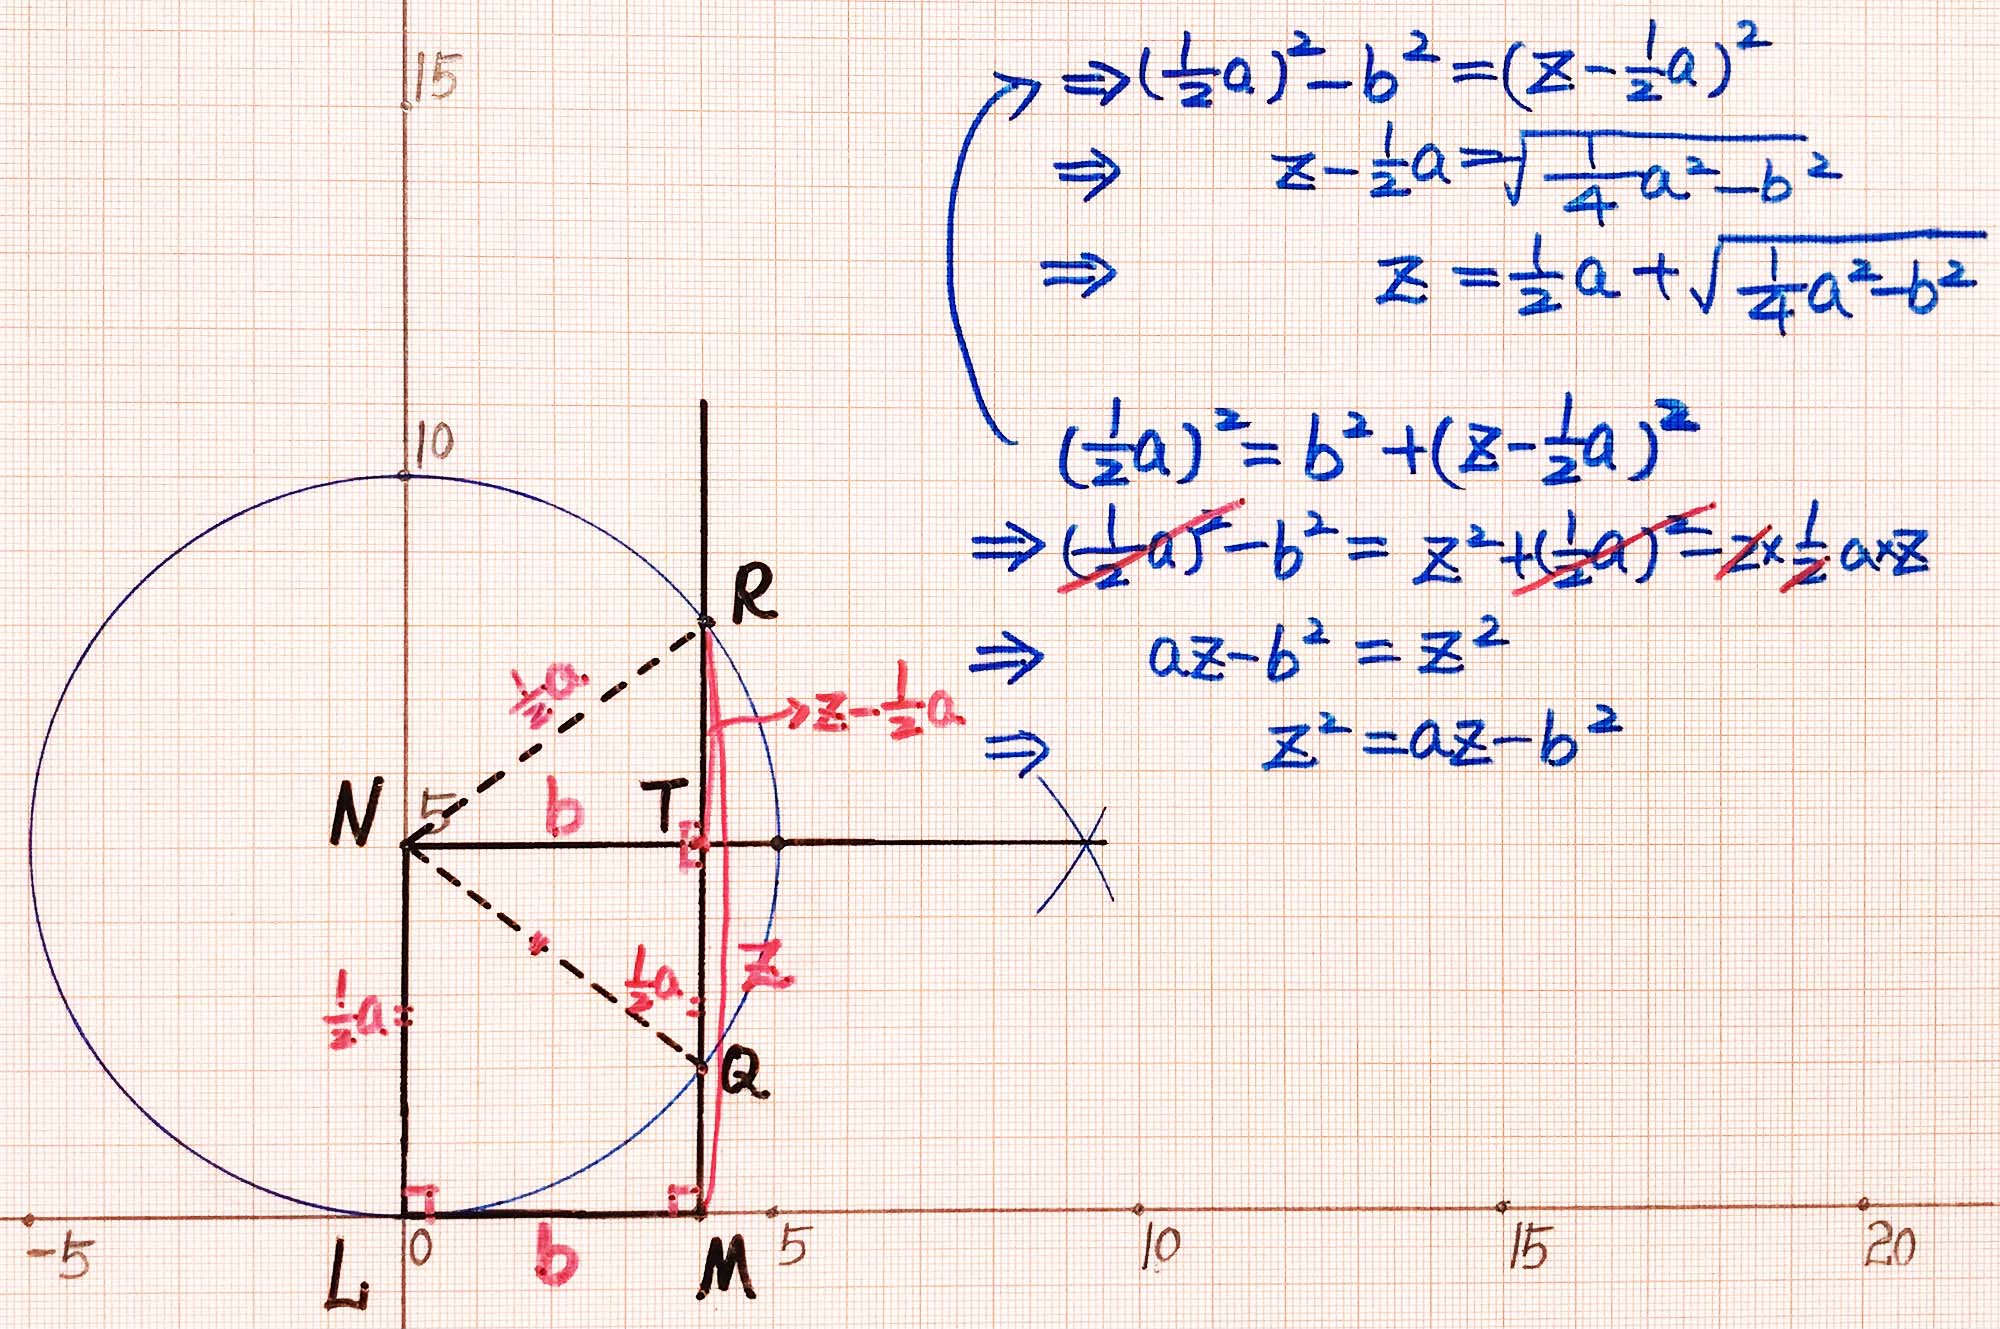 15
⇒(½a)²-b²=(z-½a)²
⇒ z-½a=√(¼a²-b²)
⇒ z=½a+√(¼a²-b²)
10
(½a)²=b²+(z-½a)²
⇒(½a)²-b²=z²+(½a)²-2×½a×z
⇒ az-b²=z²
⇒ z²=az-b²
R
½a
z-½a
N
5
b
T
½a
½a
z
Q
-5
0
5
10
15
20
L
b
M